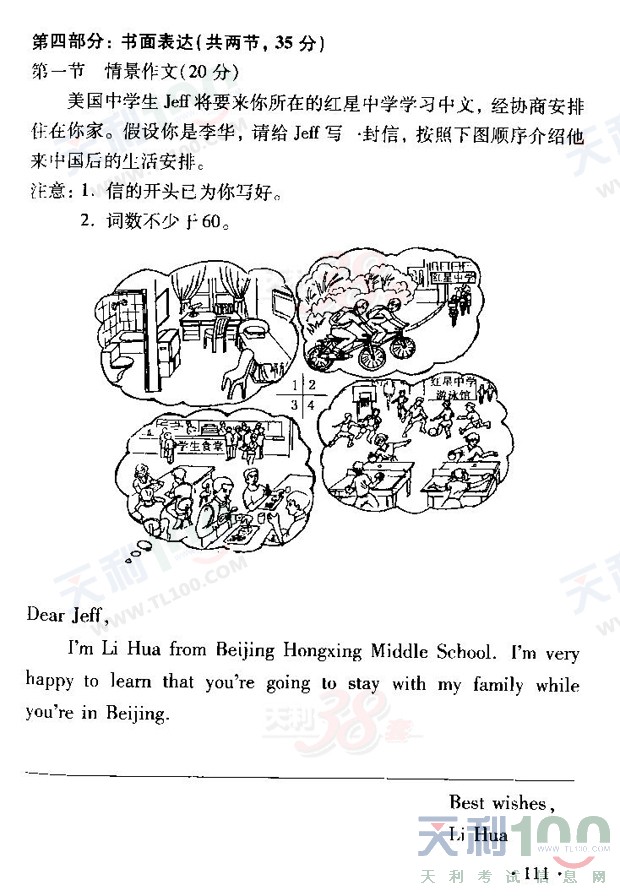 第四部分：书面表达(共两节，35 分)
第一节 情景作文(20 分)
美国中学生 Jeff 将要来你所在的红星中学学习中文，经协商安排
住在你家。假设你是李华，请给 Jeff 写一封信，按照下图顺序介绍他
来中国后的生活安排。
注意：1. 信的开头已为你写好。
2. 词数不少于60。
红星中学
1 2
3 4
红星中学
游泳馆
学生食堂
Dear Jeff,
I'm Li Hua from Beijing Hongxing Middle School. I'm very
happy to learn that you're going to stay with my family while
you're in Beijing.
Best wishes,
Li Hua
· 111 ·
天利100
WWW.TL100.COM
天利考试信息网
天利38套